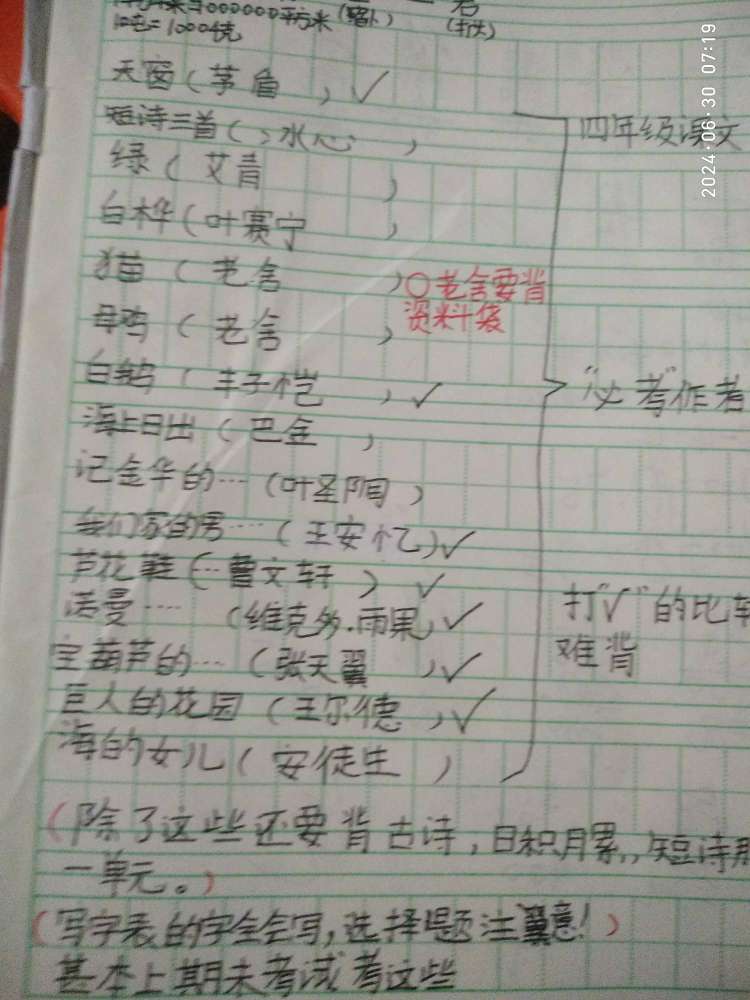 000000平方米(弱小)
君
=1000千克
天窗(茅盾)✓
短诗三首(冰心)
四年级课文
绿(艾青)
白桦(叶赛宁)
猫(老舍)
○老舍要背
资料袋
母鸡(老舍)
白鹅(丰子恺)✓
"必考"作者
海上日出(巴金)
记金华的…(叶圣陶)
我们家的男…(王安忆)✓
芦花鞋(…曹文轩)✓
诺曼…(维克多.雨果)✓
打"√"的比较
难背
宝葫芦的…(张天翼)✓
巨人的花园(王尔德)✓
海的女儿(安徒生)
(除了这些还要背古诗,日积月累,,短诗那
一单元。)
(写字表的字全会写,选择题注意!)
基本上期末考试考这些
2024·06·30 07:19